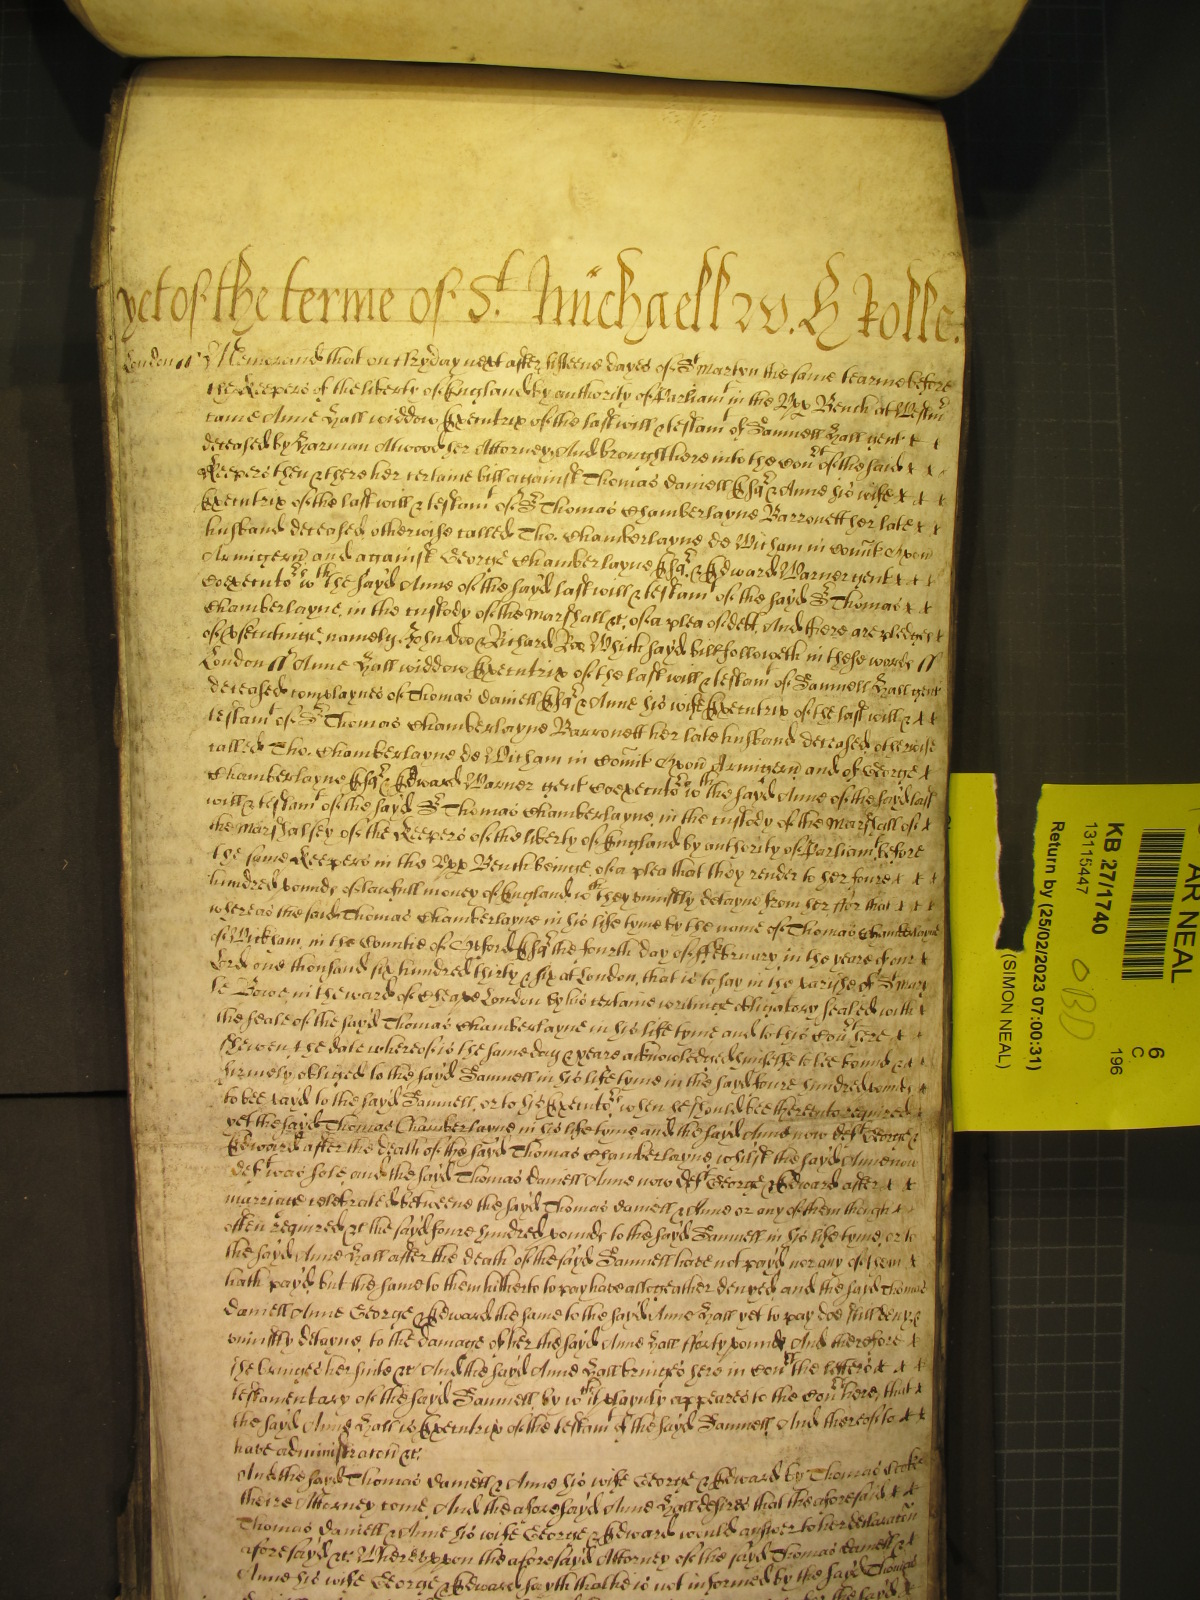 yet of the terme of St. Michaell xv. H Rolle.
London ss Memorand that on Fryday next after fifteene dayes of St Martyn the same tearme before
the Keepers of the liberty of England by authority of Parliamt in the Upp Bench at Westm
came Anne Hall widdow Executrix of the last will & testamt of Samuell Hall gent
deceased by Harman Atwood her Attorney, And brought here into the Court of the said
Keepers then & there her certaine bill against Thomas Daniell Esqr & Anne his wife
Executrix of the last will & testamt of Sr Thomas Chamberlayne Barronett her late
husband deceased otherwise called Tho. Chamberlayne de Wicham in Comit Oxon
Armigerū and against George Chamberlayne Esqr & Edward Warner gent
Coexecutors wth the sayd Anne of the sayd last will & testamt of the sayd Sr Thomas
Chamberlayne, in the custody of the Marshall &c. of a plea of debt, And there are pledges
of prosecutinge, namely John Doo & Richard Roo Which sayd bill followeth in these words ss
London ss Anne Hall widdow Executrix of the last will & testamt of Samuell Hall gent
deceased complaynes of Thomas Daniell Esqr & Anne his wife Executrix of the last will &
testamt of Sr Thomas Chamberlayne Barronett her late husband deceased, otherwise
called Tho. Chamberlayne de Wicham in Comit Oxon Armigerū and of George
Chamberlayne Esqr & Edward Warner gent Coexecutors wth the sayd Anne of the sayd last
will & testamt of the sayd Sr Thomas Chamberlayne, in the custody of the Marshall of
the Marshalsey of the Keepers of the liberty of England by authority of Parliamt before
the same Keepers in the Upp Bench beinge, of a plea that they render to her foure
hundred pounds of lawfull money of England wch they uniustly detayne from her ffor that
whereas the said Thomas Chamberlayne in his life tyme by the name of Thomas Chamberlayne
of Wickham, in the Countie of Oxford Esqr the fourth day of ffebruary in the yeare of our
Lord one thousand six hundred thirty & six at London, that is to say in the Parishe of St Mary
le Bowe, in the ward of Cheape London by his certaine writinge obligatory sealed with
the seale of the sayd Thomas Chamberlayne in his life tyme and to this Court here
shewen, the date whereof is the same day & yeare acknowledged himselfe to bee bound &
firmely obliged to the sayd Samuell in his life tyme in the sayd foure hundred pounds
to bee payd to the sayd Samuell, or to his Executors when he should bee thereunto required
yet the sayd Thomas Chamberlayne in his life tyme and the sayd Anne now deft George &
Edward after the death of the sayd Thomas Chamberlayne whilst the sayd Anne now
deft was sole, and the sayd Thomas Daniell Anne now deft George & Edward after
marriage celebrated betweene the sayd Thomas Daniell & Anne or any of them though
often required &c the sayd foure hundred pounds to the sayd Samuell in his life tyme, or to
the sayd Anne Hall after the death of the sayd Samuell have not payd nor any of them
hath payd, but the same to them hitherto to pay have altogeather denyed, and the said Thomas
Daniell Anne George & Edward the same to the sayd Anne Hall yet to pay doe still deny &
uniustly detayne, to the damage of her the sayd Anne Hall fforty pounds And therefore
she bringes her suite &c And the sayd Anne Hall bringes here in Court the letters
testamentary of the sayd Samuell, by wch it playnly appeares to the Court here, that
the sayd Anne Hall is Executrix of the testamt of the sayd Samuell And thereof to
have administracōn &c.
And the sayd Thomas Daniell & Anne his wife George & Edward by Thomas Cooke
theire Attorney come, And the aforesayd Anne Hall desires that the aforesaid
Thomas Daniell & Anne his wife George & Edward would answer to her declaracōn
aforesayd &c Whereuppon the aforesayd Attorney of the sayd Thomas Daniell &
Anne his wife George & Edward sayth that he is not informed by the sayd Thomas
AR NEAL
KB 27/1740
13115447
Return by (25/02/2023 07:00:31)
(SIMON NEAL)
6
C
196
OBD